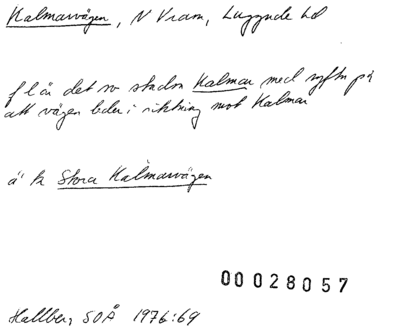 Kalmarvägen, N Vram, Luggude hd
f l är det sv staden Kalmar med syftn på
att vägen leder i riktning mot Kalmar
ä k Stora Kalmarvägen
00028057
Hallberg, SOÅ 1976:69